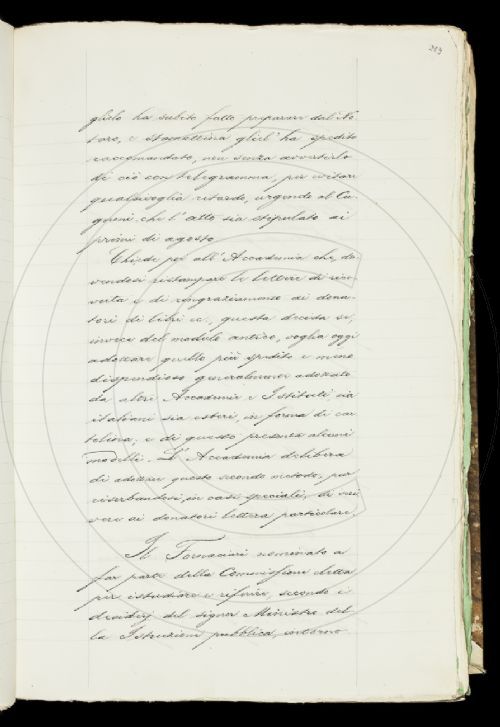 203
glielo ha subito fatto preparare dal No-
taro, e stamattina gliel'ha spedito
raccomandato, non senza avvertirlo
di ciò con telegramma, per evitare
qualsivoglia ritardo, urgendo al Cu-
gnoni che l'atto sia stipulato ai
primi di agosto
Chiede poi all'Accademia che, do-
vendosi ristampare le lettere di rice-
vuta e di ringraziamento ai dona-
tori di libri ec., questa decida se,
invece del modulo antico, voglia oggi
adottare quello più spedito e meno
dispendioso generalmente adottato
da altre Accademie e Istituti sia
italiani sia esteri, in forma di car-
tolina, e di questo presenta alcuni
modelli. L'Accademia delibera
di adottare questo secondo metodo, pur
riserbandosi, in casi speciali, di scri-
vere ai donatori lettera particolare.
Il Fornaciari nominato a
far parte della Commissione eletta
per istudiare e riferire, secondo i
desiderj del signor Ministro del-
la Istruzione pubblica, intorno